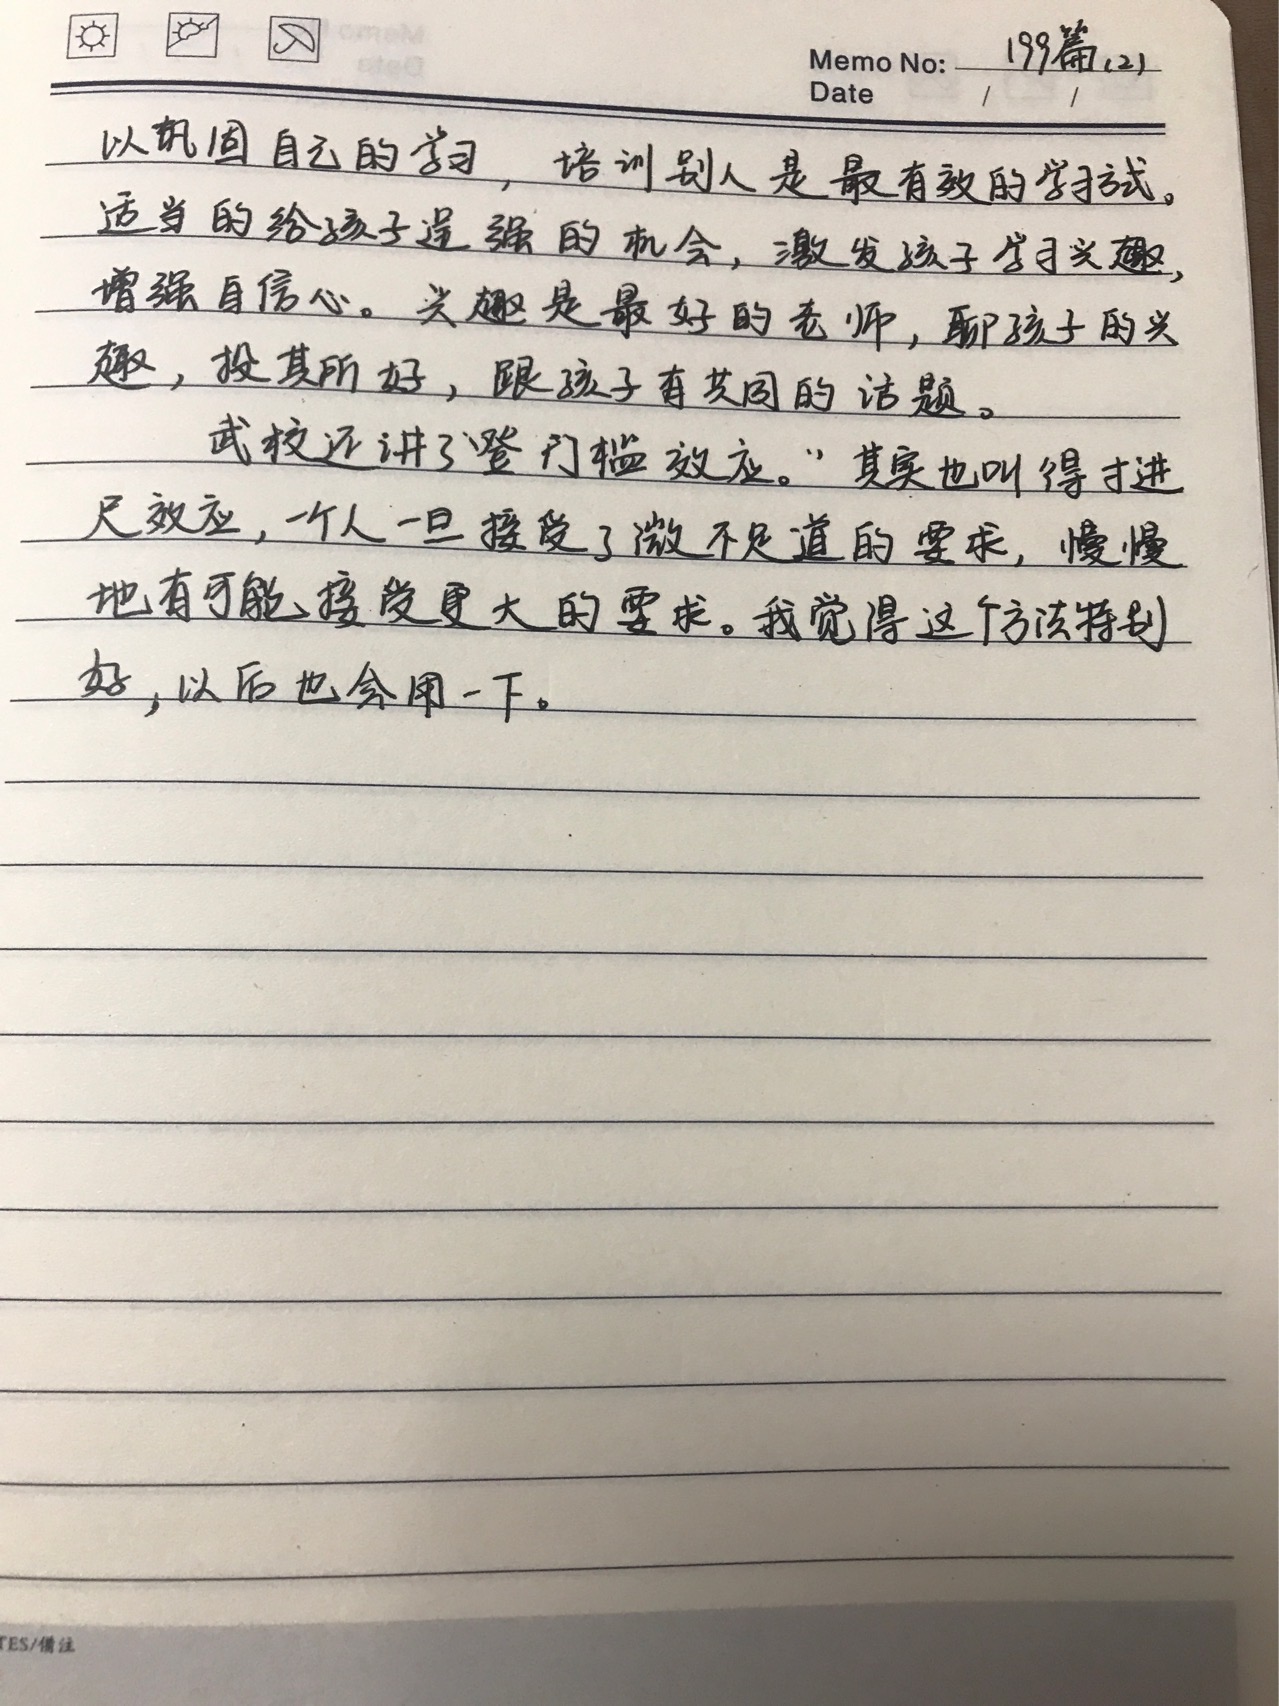 Memo No: 199篇(2)
Date / /
以巩固自己的学习，培训别人是最有效的学习方式。
适当的给孩子逞强的机会，激发孩子学习兴趣，
增强自信心。兴趣是最好的老师，聊孩子的兴
趣，投其所好，跟孩子有共同的话题。
武校还讲了“登门槛效应。”其实也叫得寸进
尺效应，一个人一旦接受了微不足道的要求，慢慢
地有可能接受更大的要求。我觉得这个方法特别
好，以后也会用一下。
TES/備注